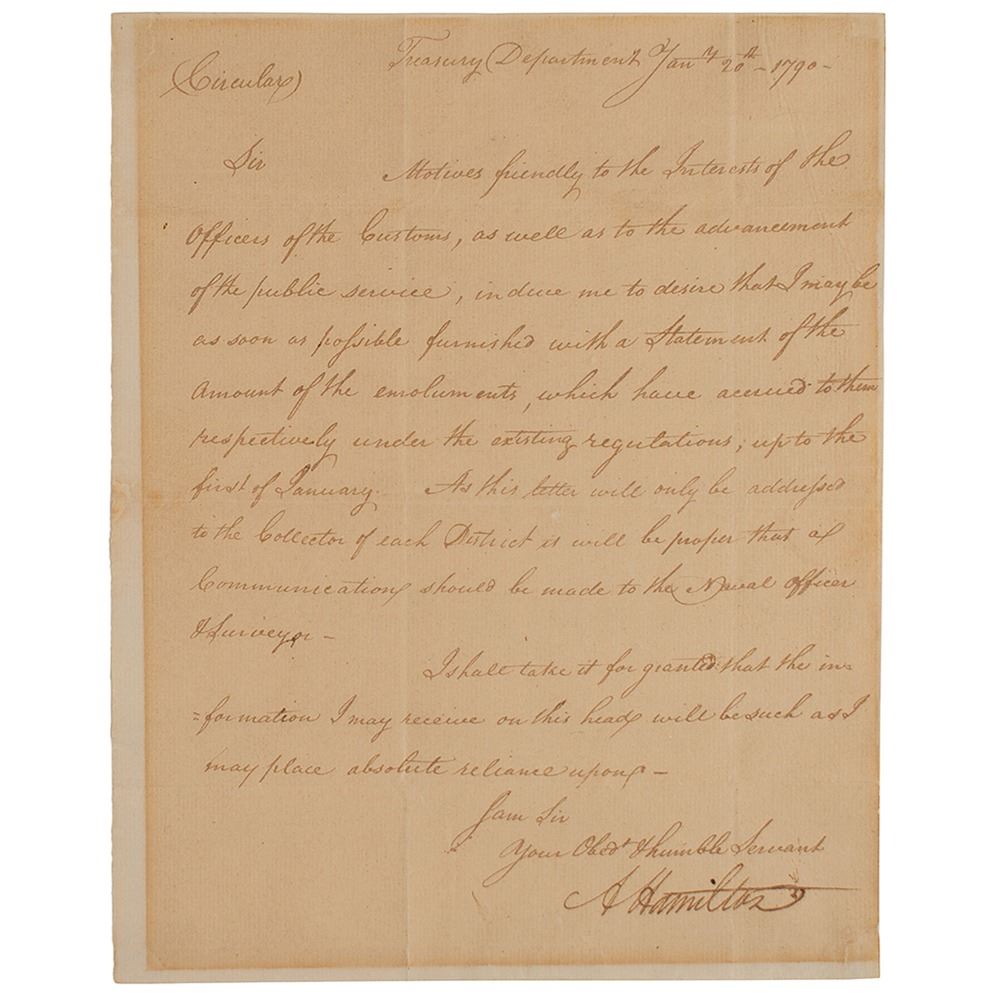 Treasury Department Jany 20th - 1790 -
(Circular)
Sir Motives friendly to the Interests of the
Officers of the Customs, as well as to the advancement
of the public service, induce me to desire that I may be
as soon as possible furnished with a Statement of the
Amount of the emoluments, which have accrued to them
respectively under the existing regulations, up to the
first of January. As this letter will only be addressed
to the Collector of each District it will be proper that a
Communication should be made to the Naval officer
& Surveyor -
I shall take it for granted that the in=
=formation I may receive on this head will be such as I
may place absolute reliance upon -
I am Sir
Your Obedt & humble Servant
A Hamilton